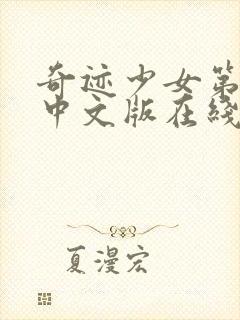 奇迹少女第
中文版在线
夏漫宏